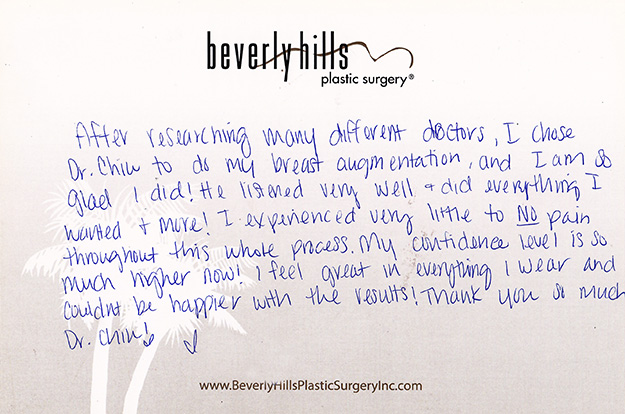 beverly hills
plastic surgery®
After researching many different doctors, I chose
Dr. Chiu to do my breast augmentation, and I am so
glad I did! He listened very well + did everything I
wanted + more! I experienced very little to NO pain
throughout this whole process. My confidence level is so
much higher now! I feel great in everything I wear and
couldnt be happier with the results! Thank you so much
Dr. Chiu!
www.BeverlyHillsPlasticSurgeryInc.com